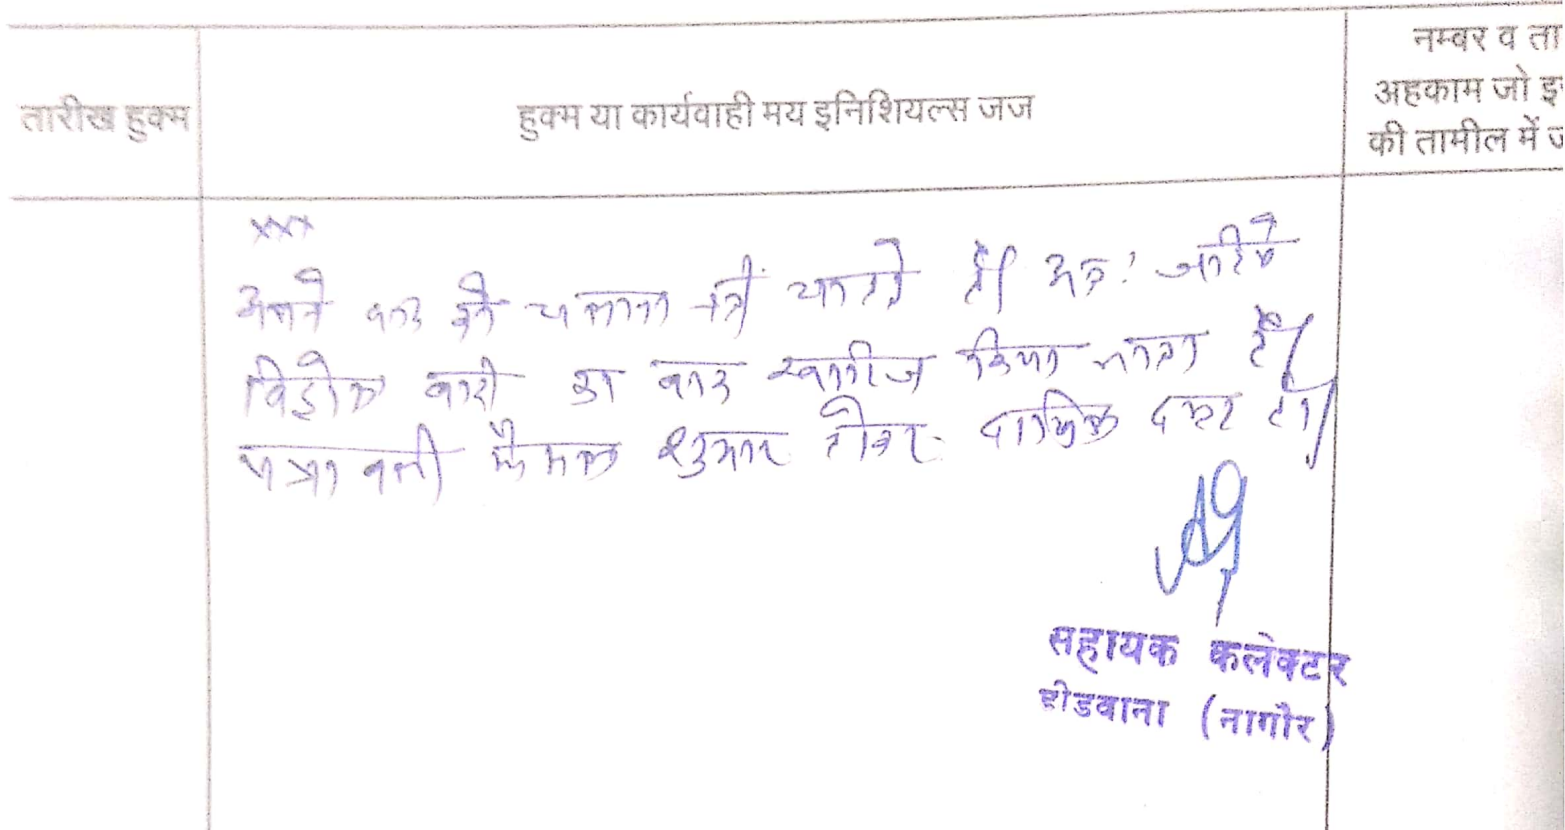 नम्बर व ता
तारीख हुक्म हुक्म या कार्यवाही मय इनिशियल्स जज अहकाम जो इ
की तामील में ज
xxx
अपने वाद को चलाना नहीं चाहते है। अतः जरिये
विड्रोल वादी का वाद खारीज किया जाता है।
पत्रावली फैसल शुमार होकर दाखिल दफ्तर हो।
सहायक कलेक्टर
डीडवाना (नागौर)